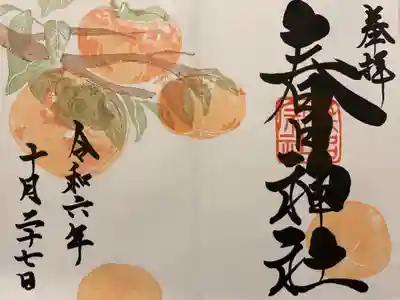 奉拝
春日神社
令和六年
十月二十七日